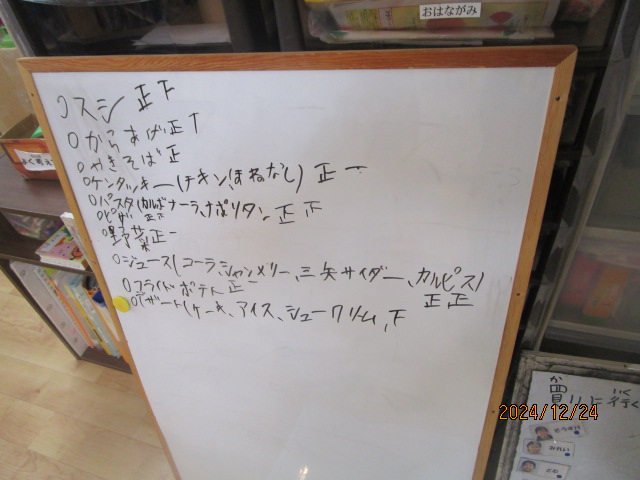 おはながみ
○スシ 正下
○からあげ正丅
○やきそば正
○ケンタッキー(チキン、ほねなし) 正一
○パスタ(カルボナーラ、ナポリタン 正下
○ピザ 正下
○野菜正一
○ジュース(コーラ、シャンメリー、三矢サイダー、カルピス)
正正
○フライドポテト正一
○デザート(ケーキ、アイス、シュークリーム、下
買いに行く
か い
2024/12/24